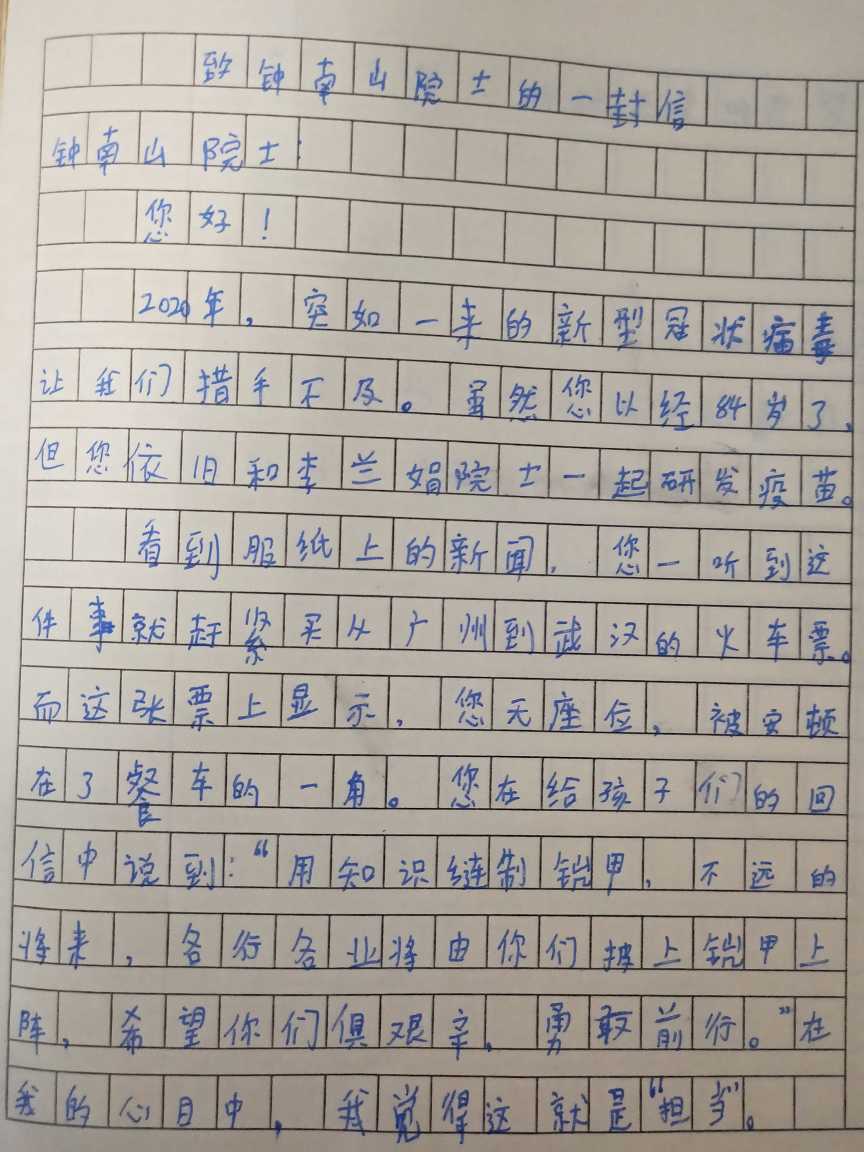 致钟南山院士的一封信
钟南山院士：
您好！
2020年，突如一来的新型冠状病毒
让我们措手不及。虽然您以经84岁了，
但您依旧和李兰娟院士一起研发疫苗。
看到服纸上的新闻，您一听到这
件事就赶紧买从广州到武汉的火车票。
而这张票上显示，您无座位，被安顿
在了餐车的一角。您在给孩子们的回
信中说到：“用知识缝制铠甲，不远的
将来，各行各业将由你们披上铠甲上
阵，希望你们俱艰辛，勇敢前行。”在
我的心目中，我觉得这就是“担当”。